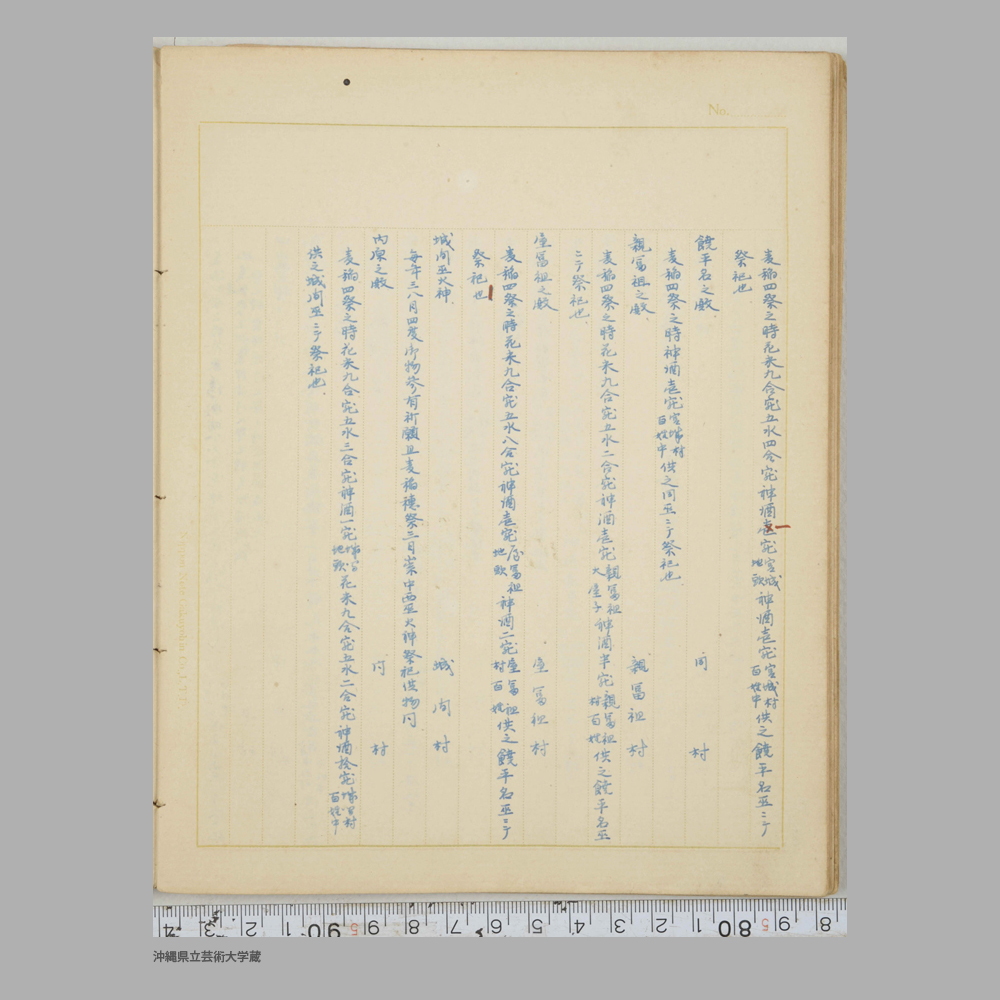 No.
麦稲四祭之時花米九合宛五水四合宛神酒壱宛宮城地頭神酒壱宛宮城村百姓中供之饒平名巫ニテ
祭祀也.
饒平名之殿 同村
麦稲四祭之時神酒壱宛 百姓中供之同巫ニテ祭祀也.
親冨祖之殿. 親冨祖村
麦稲四祭之時花米九合宛五水二合宛神酒壱宛親冨祖大屋子神酒半宛親冨祖村百姓供之饒平名巫
ニテ祭祀也.
屋冨祖之殿 屋冨祖村
麦稲四祭之時花米九合宛五水八合宛神酒壱宛屋冨祖地頭神酒二宛屋冨祖村百姓供之饒平名巫ニテ
祭祀也
城間巫火神. 城間村
毎年三八月四度御物参有祈願且麦稲穂祭三日崇中西巫火神祭祀供物同
内原之殿 同村
麦稲四祭之時花米九合宛五水三合宛神酒一宛 地頭花米九合宛五水二合宛神酒拾宛 村百姓中
供之城間巫ニテ祭祀也.
沖縄県立芸術大学蔵